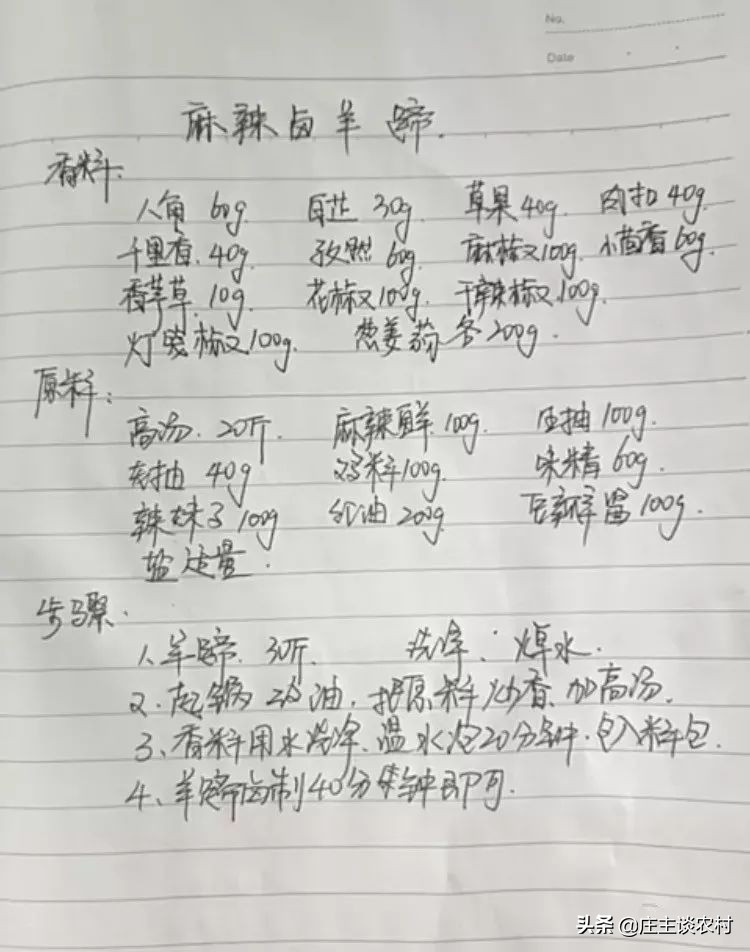 No.
Date
麻辣卤羊蹄.
香料:
八角 60g. 白芷 30g. 草果 40g. 肉扣 40g.
千里香. 40g. 孜然 60g. 麻椒 100g. 小茴香 60g.
香茅草. 10g. 花椒 100g. 干辣椒 100g.
灯笼椒 100g. 葱姜蒜 各 200g.
原料:
高汤. 20斤. 麻辣鲜. 100g. 生抽 100g.
老抽 40g 鸡粉 100g. 味精 60g.
辣妹子 100g 红油 200g 豆瓣酱 100g.
盐适量.
步骤.
1、羊蹄. 30斤. 洗净. 焯水.
2. 起锅 油, 把原料炒香. 加高汤.
3、香料用水洗净. 温水泡20分钟. 包入料包.
4、羊蹄卤制40分钟即可.
头条 @庄主谈农村